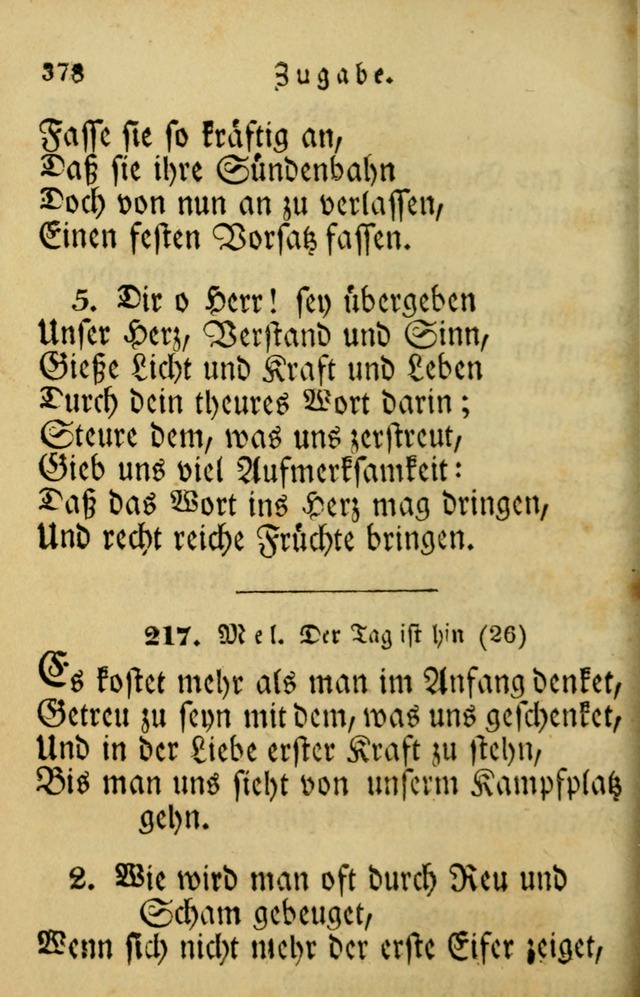 378 Zugabe.
Fasse sie so kräftig an,
Daß sie ihre Sündenbahn
Doch von nun an zu verlassen,
Einen festen Vorsatz fassen.
5. Dir o Herr! sey übergeben
Unser Herz, Verstand und Sinn,
Gieße Licht und Kraft und Leben
Durch dein theures Wort darin;
Steure dem, was uns zerstreut,
Gieb uns viel Aufmerksamkeit:
Daß das Wort ins Herz mag dringen,
Und recht reiche Früchte bringen.
217. Mel. Der Tag ist hin (26)
Es kostet mehr als man im Anfang denket,
Getreu zu seyn mit dem, was uns geschenket,
Und in der Liebe erster Kraft zu stehn,
Bis man uns sieht von unserm Kampfplatz
gehn.
2. Wie wird man oft durch Reu und
Scham gebeuget,
Wenn sich nicht mehr der erste Eifer zeiget,